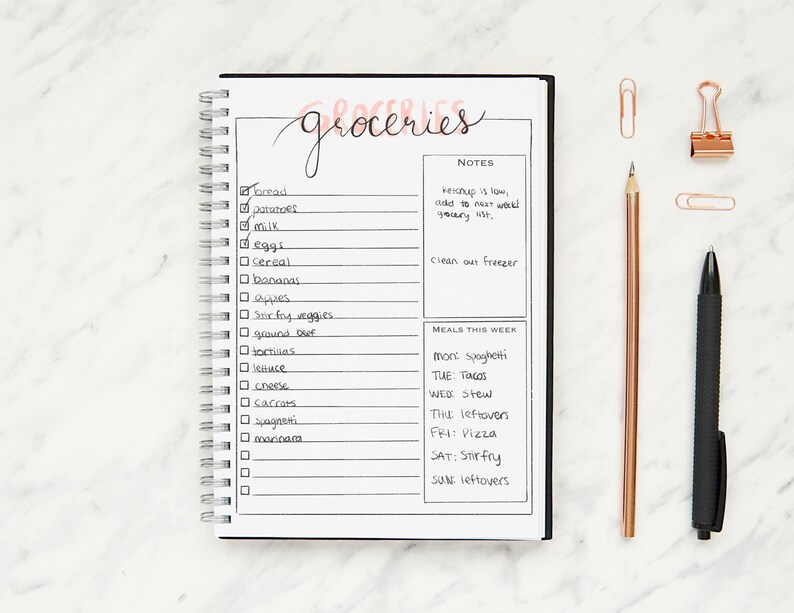 GROCERIES
groceries
bread
potatoes
milk
eggs
cereal
bananas
apples
Stir fry veggies
ground beef
tortillas
lettuce
cheese
carrots
spaghetti
marinara
NOTES
ketchup is low,
add to next week's
grocery list.
clean out freezer
MEALS THIS WEEK
MON: spaghetti
TUE: Tacos
WED: Stew
THU: leftovers
FRI: Pizza
SAT: Stirfry
SUN: leftovers